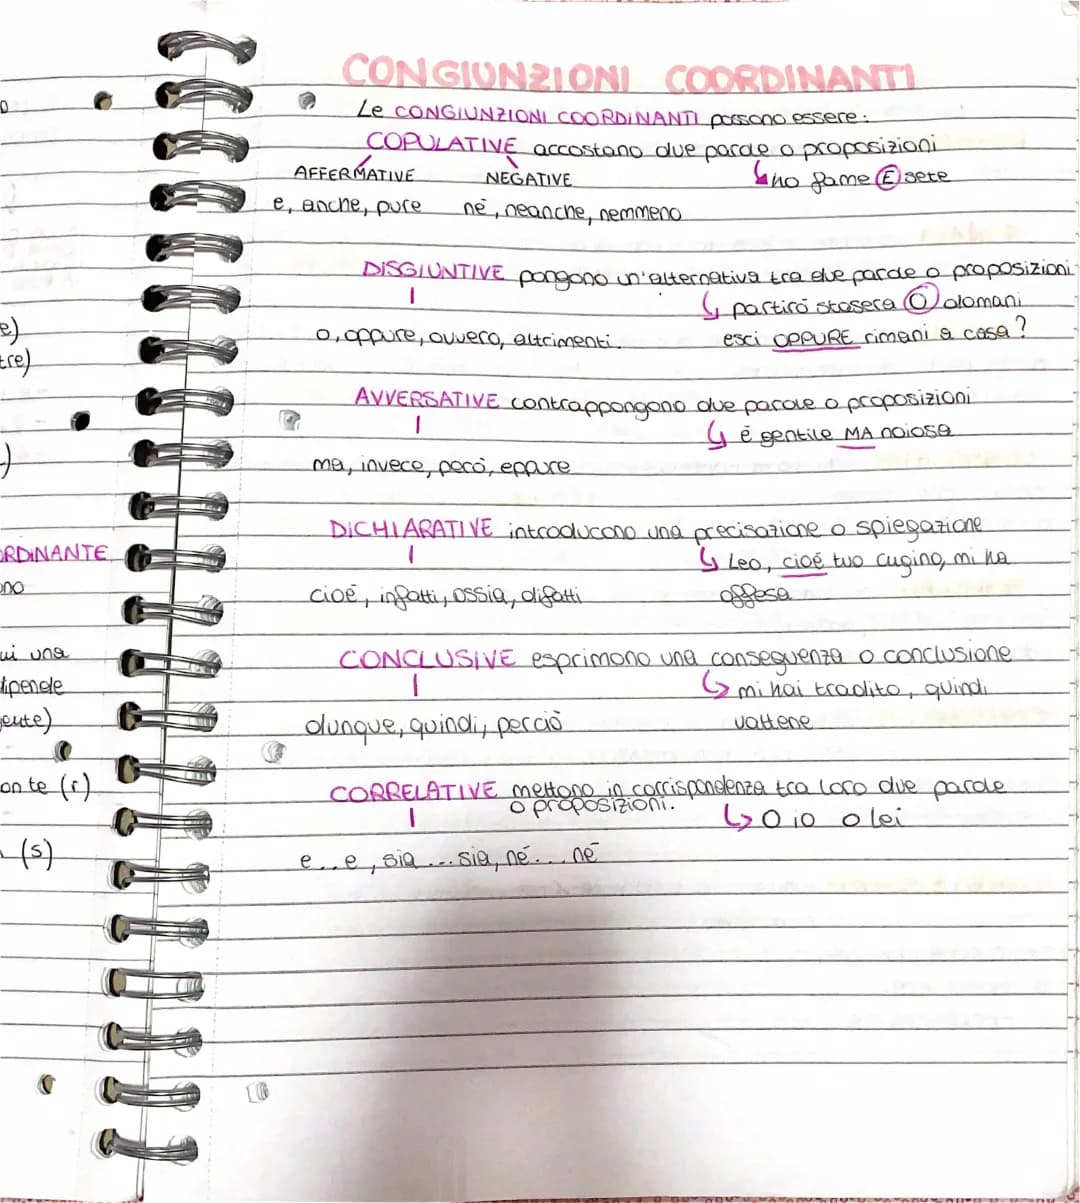 CONGIUNZIONI COORDINANTI
Le CONGIUNZIONI COORDINANTI possono essere:
COPULATIVE accostano due parole o proposizioni
AFFERMATIVE NEGATIVE ↳ho fame E sete
e, anche, pure né, neanche, nemmeno
DISGIUNTIVE pongono un'alternativa tra due parole o proposizioni
↳ partirò stasera O domani
o, oppure, ovvero, altrimenti. esci OPPURE rimani a casa?
AVVERSATIVE contrappongono due parole o proposizioni
↳ é gentile MA noiosa
ma, invece, però, eppure
DICHIARATIVE introducono una precisazione o spiegazione
↳ Leo, cioé tuo cugino, mi ha
cioé, infatti, ossia, difatti offesa
CONCLUSIVE esprimono una conseguenza o conclusione
↳ mi hai tradito, quindi
dunque, quindi, perciò vattene
CORRELATIVE mettono in corrispondenza tra loro due parole
o proposizioni.
↳ O io o lei
e...e, sia...sia, né...né
e)
tre)
)
ORDINANTE
ono
ui una
dipende
ente)
onte (r)
(s)